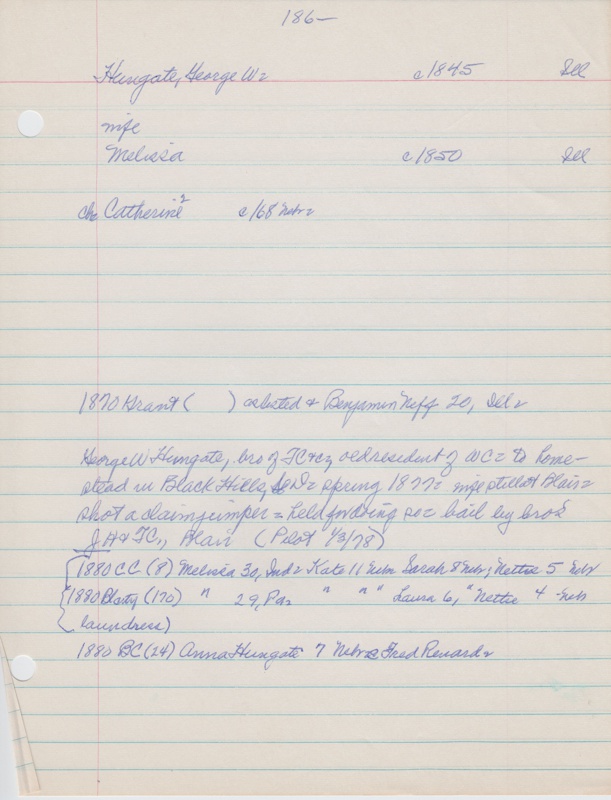 186-
Hungate, George W. c1845 Ill
wife
Melissa c1850 Ill
ch. Catherine c/68 Nebr.
1870 Grant ( ) & Benjamin Neff 20, Ill.
George W Hungate, bro of TC & old resident of WC. to home-
stead in Black Hills, spring 1877. wife still at Blair.
shot a claim jumper = held for bail by bros
J.H & TC., Blair (Pilot 1/3/78)
1880 CC (8) Melissa 30, Ind. Kate 11 Nebr. Sarah 8 Nebr, Nettie 5 Nebr
1880 (170) " 29, Pa. " " " Laura 6, " Nettie 4 Neb
laundress)
1880 BC (24) Anna Hungate 7 Nebr. Fred Renard.